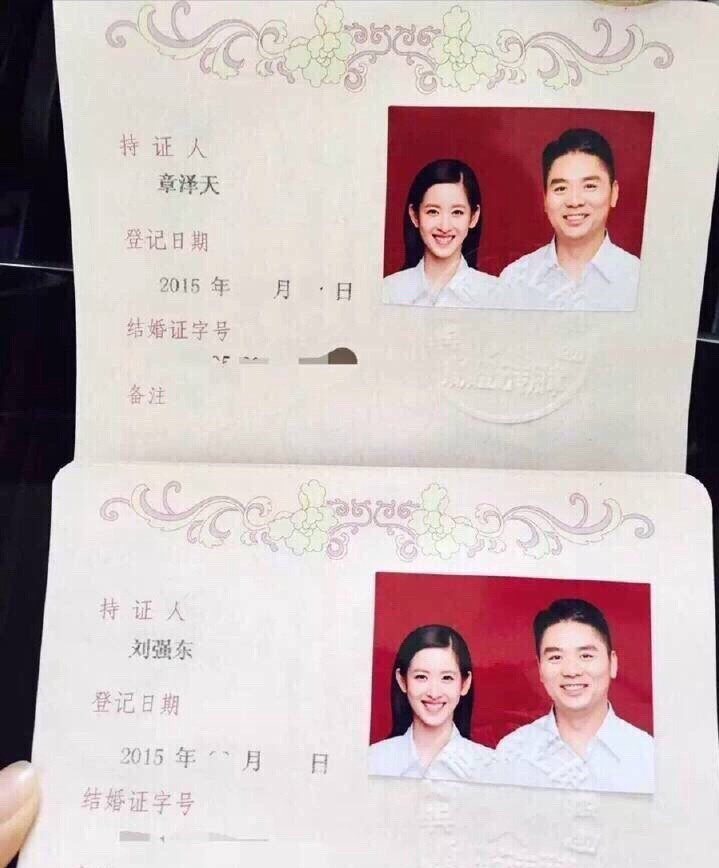 持证人
章泽天
登记日期
2015 年 月 日
结婚证字号
备注
持证人
刘强东
登记日期
2015 年 月 日
结婚证字号